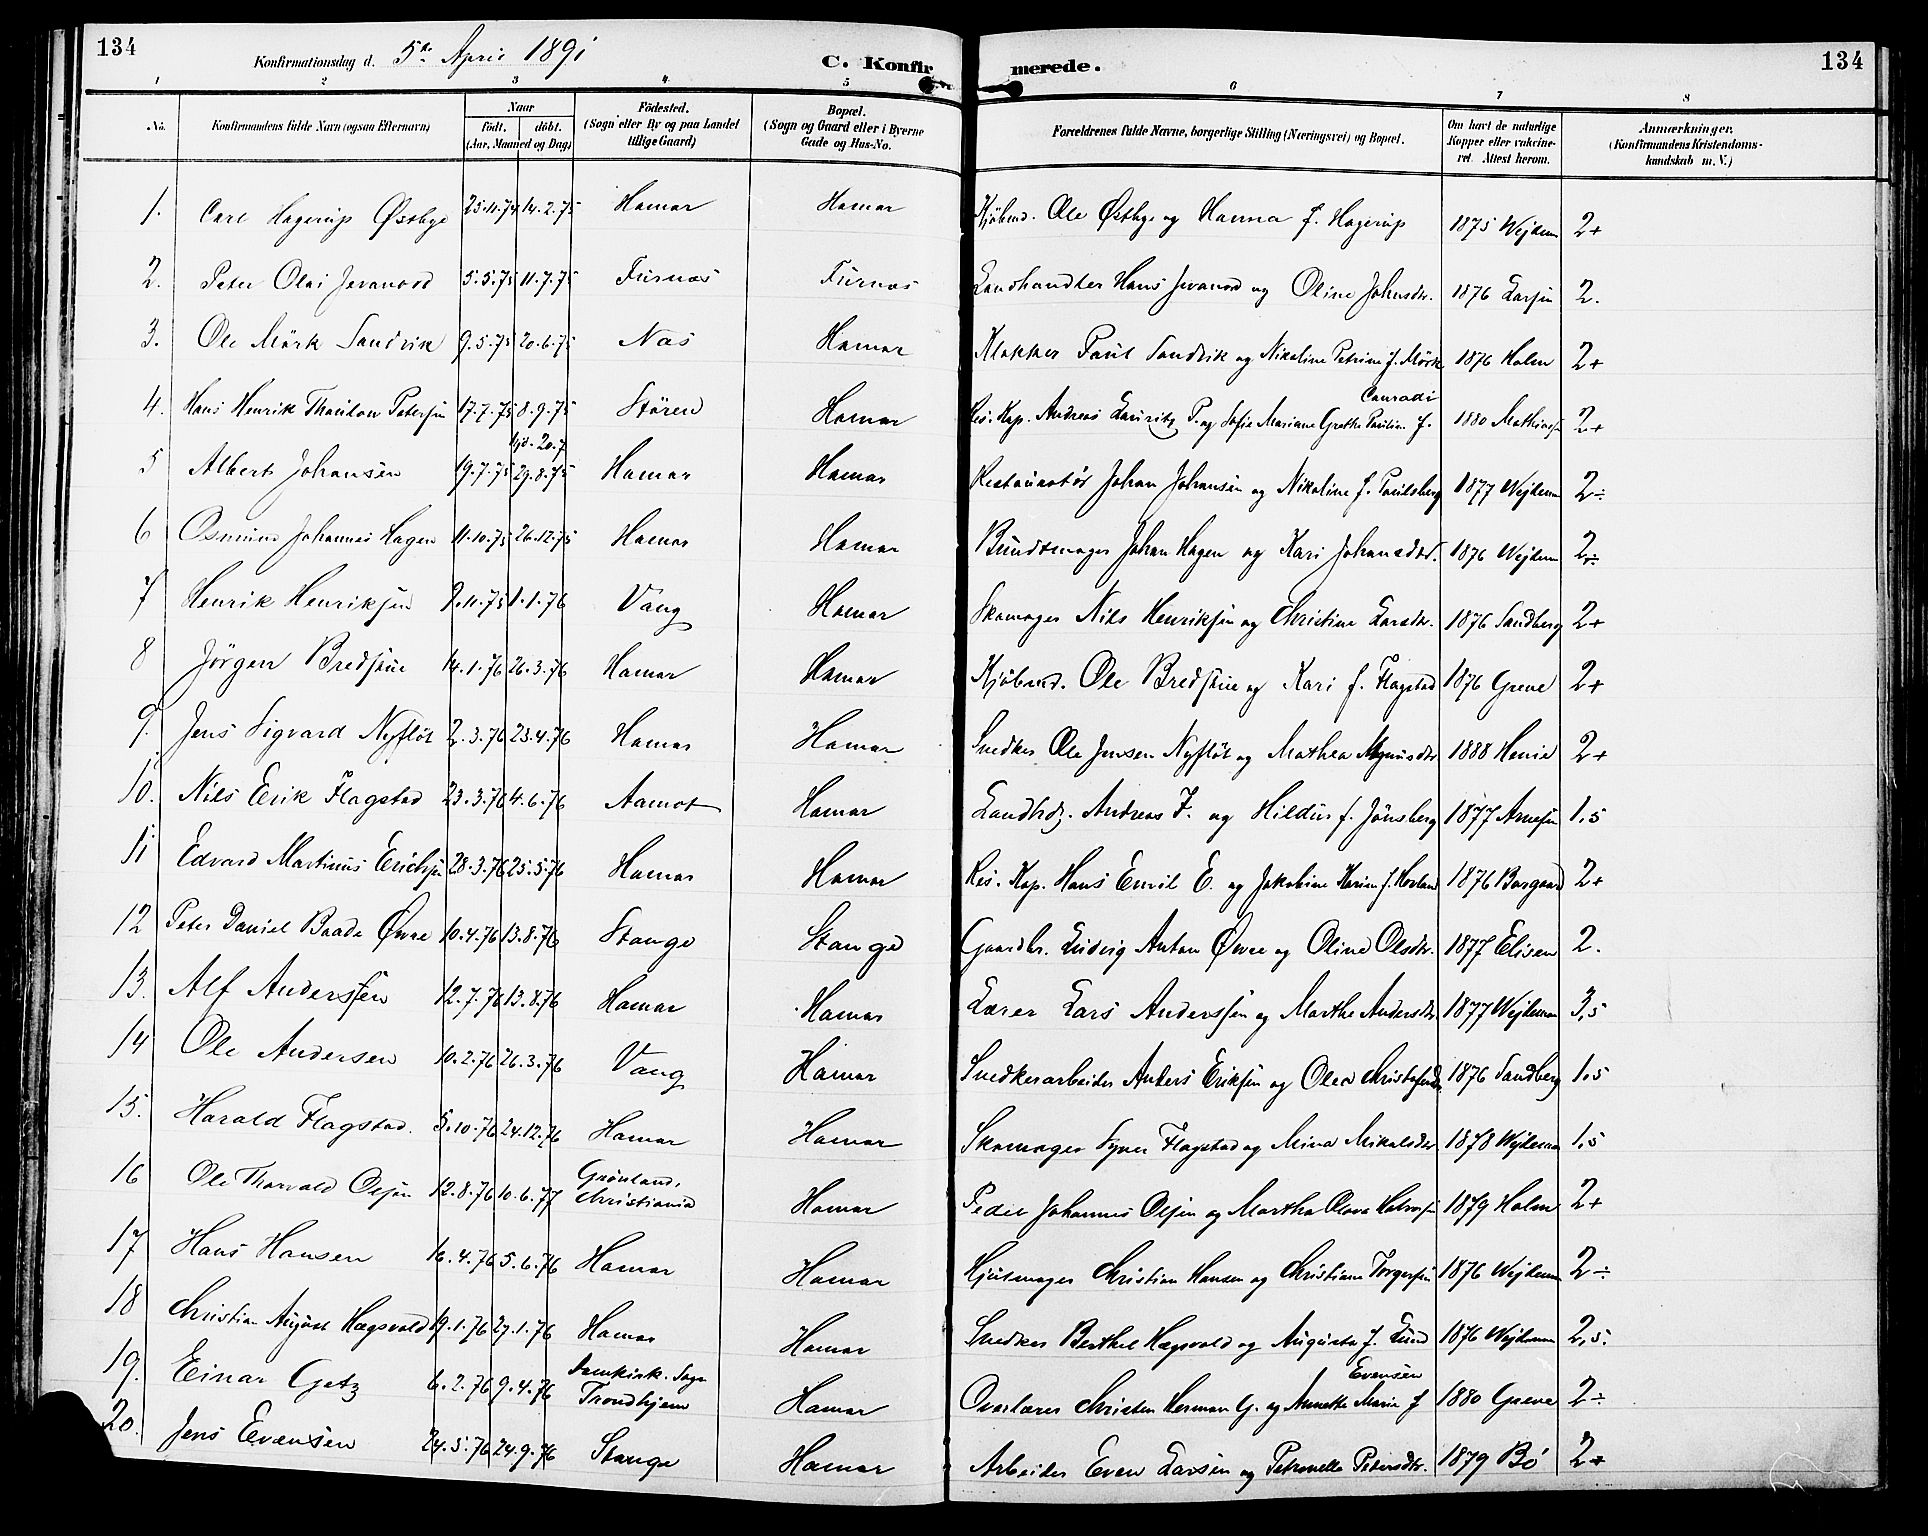 134
Konfirmationsdag d. 5te April 1891
C. Konfirmerede.
134
1 2 3 4 5 6 7 8
No.
Konfirmandens fulde Navn (ogsaa Efternavn)
Naar
födt. döbt.
(Aar, Maaned og Dag)
Födested.
(Sogn eller By og paa Landet
tillige Gaard)
Bopæl.
(Sogn og Gaard eller i Byerne
Gade og Hus-No.
Forældrenes fulde Navne, borgerlige Stilling (Næringsvei) og Bopæl.
Om havt de naturlige
Kopper eller vakcine-
ret. Attest herom.
Anmærkninger.
(Konfirmandens Kristendoms-
kundskab m. V.)
1. Carl Hagerup Østbye 25.11.74 14.2.75 Hamar Hamar Kjöbmd. Ole Østbye og Hanna f. Hagerup 1875 Wejdem 2+
2. Peter Olai Jevanord 5.5.75 11.7.75 Furnæs Furnæs Landhandler Hans Jevanord og Oline Johnsdtr. 1876 Larsen 2.
3. Ole Mörk Sandvik 9.5.75 20.6.75 Næs Hamar Klokker Paul Sandvik og Nikoline Petrine f. Mörk 1876 Holm 2+
4. Hans Henrik Thaulow Petersen 17.7.75 8.9.75 Stören Hamar Res. Kap. Andreas Lauritz P. og Sofie Mariane Grethe Pauline f. Conradi 1880 Mathiasen 2+
5 Albert Johansen 19.7.75 hjd. 20.7 29.8.75 Hamar Hamar Restauratör Johan Johansen og Nikoline f. Paulsberg 1877 Wejdem 2÷
6 Osmund Johannes Hagen 11.10.75 26.12.75 Hamar Hamar Bundtmager Johan Hagen og Kari Johansdtr. 1876 Wejdem 2÷
7 Henrik Henriksen 9.11.75 1.1.76 Vang Hamar Skomager Nils Henriksen og Christine Larsdtr. 1876 Sandberg 2+
8 Jörgen Bredstue 14.1.76 26.3.76 Hamar Hamar Kjöbmd. Ole Bredstue og Kari f. Flagstad 1876 Greve 2+
9. Jens Sigvard Nyflöt 2.3.76 23.4.76 Hamar Hamar Snedker Ole Jenssen Nyflöt og Mathea Magnusdtr 1888 Henie 2+
10. Nils Erik Flagstad 23.3.76 4.6.76 Aamot Hamar Landhdl. Andreas F. og Hildur f. Jönsberg 1877 Arnesen 1,5
11 Edvard Martinus Erichsen 28.3.76 25.5.76 Hamar Hamar Res. Kap. Hans Emil E. og Jakobine Karine f. Hovland 1876 Borgaard 2+
12 Peter Daniel Baade Øvre 10.4.76 13.8.76 Stange Stange Gaardbr. Ludvig Anton Øvre og Oline Olsdtr. 1877 Elisen 2.
13. Alf Anderssen 12.7.76 13.8.76 Hamar Hamar Lærer Lars Anderssen og Marthe Andersdtr. 1877 Wejdeman 3,5
14 Ole Andersen 10.2.76 26.3.76 Vang Hamar Snedkerarbeider Anders Eriksen og Olea Christofersdtr 1876 Sandberg 1,5
15. Harald Flagstad. 5.10.76 24.12.76 Hamar Hamar Skomager Syver Flagstad og Mina Mikalsdtr 1878 Wejdeman 1,5
16 Ole Thorvald Olsen 12.8.76 10.6.77 Grönland, Christiania Hamar Peder Johannes Olsen og Martha Olava Halvorsen 1879 Holm 2+
17 Hans Hansen 16.4.76 5.6.76 Hamar Hamar Hjulmager Christian Hansen og Christiane Torgersen 1876 Wejdem 2÷
18 Christian August Hægsvold 19.1.76 27.1.76 Hamar Hamar Snedker Berthel Hægsvold og Augusta f. Lund 1876 Wejdem 2,5.
19. Einar Getz 6.2.76 9.4.76 Domkirk. Sogn Trondhjem Hamar Overlærer Christen Herman G. og Annette Marie f Evensen 1880 Greve 2÷
20. Jens Evensen 24.5.76 24.9.76 Stange Hamar Arbeider Even Larsen og Petronelle Petersdtr. 1879 Bö 2+